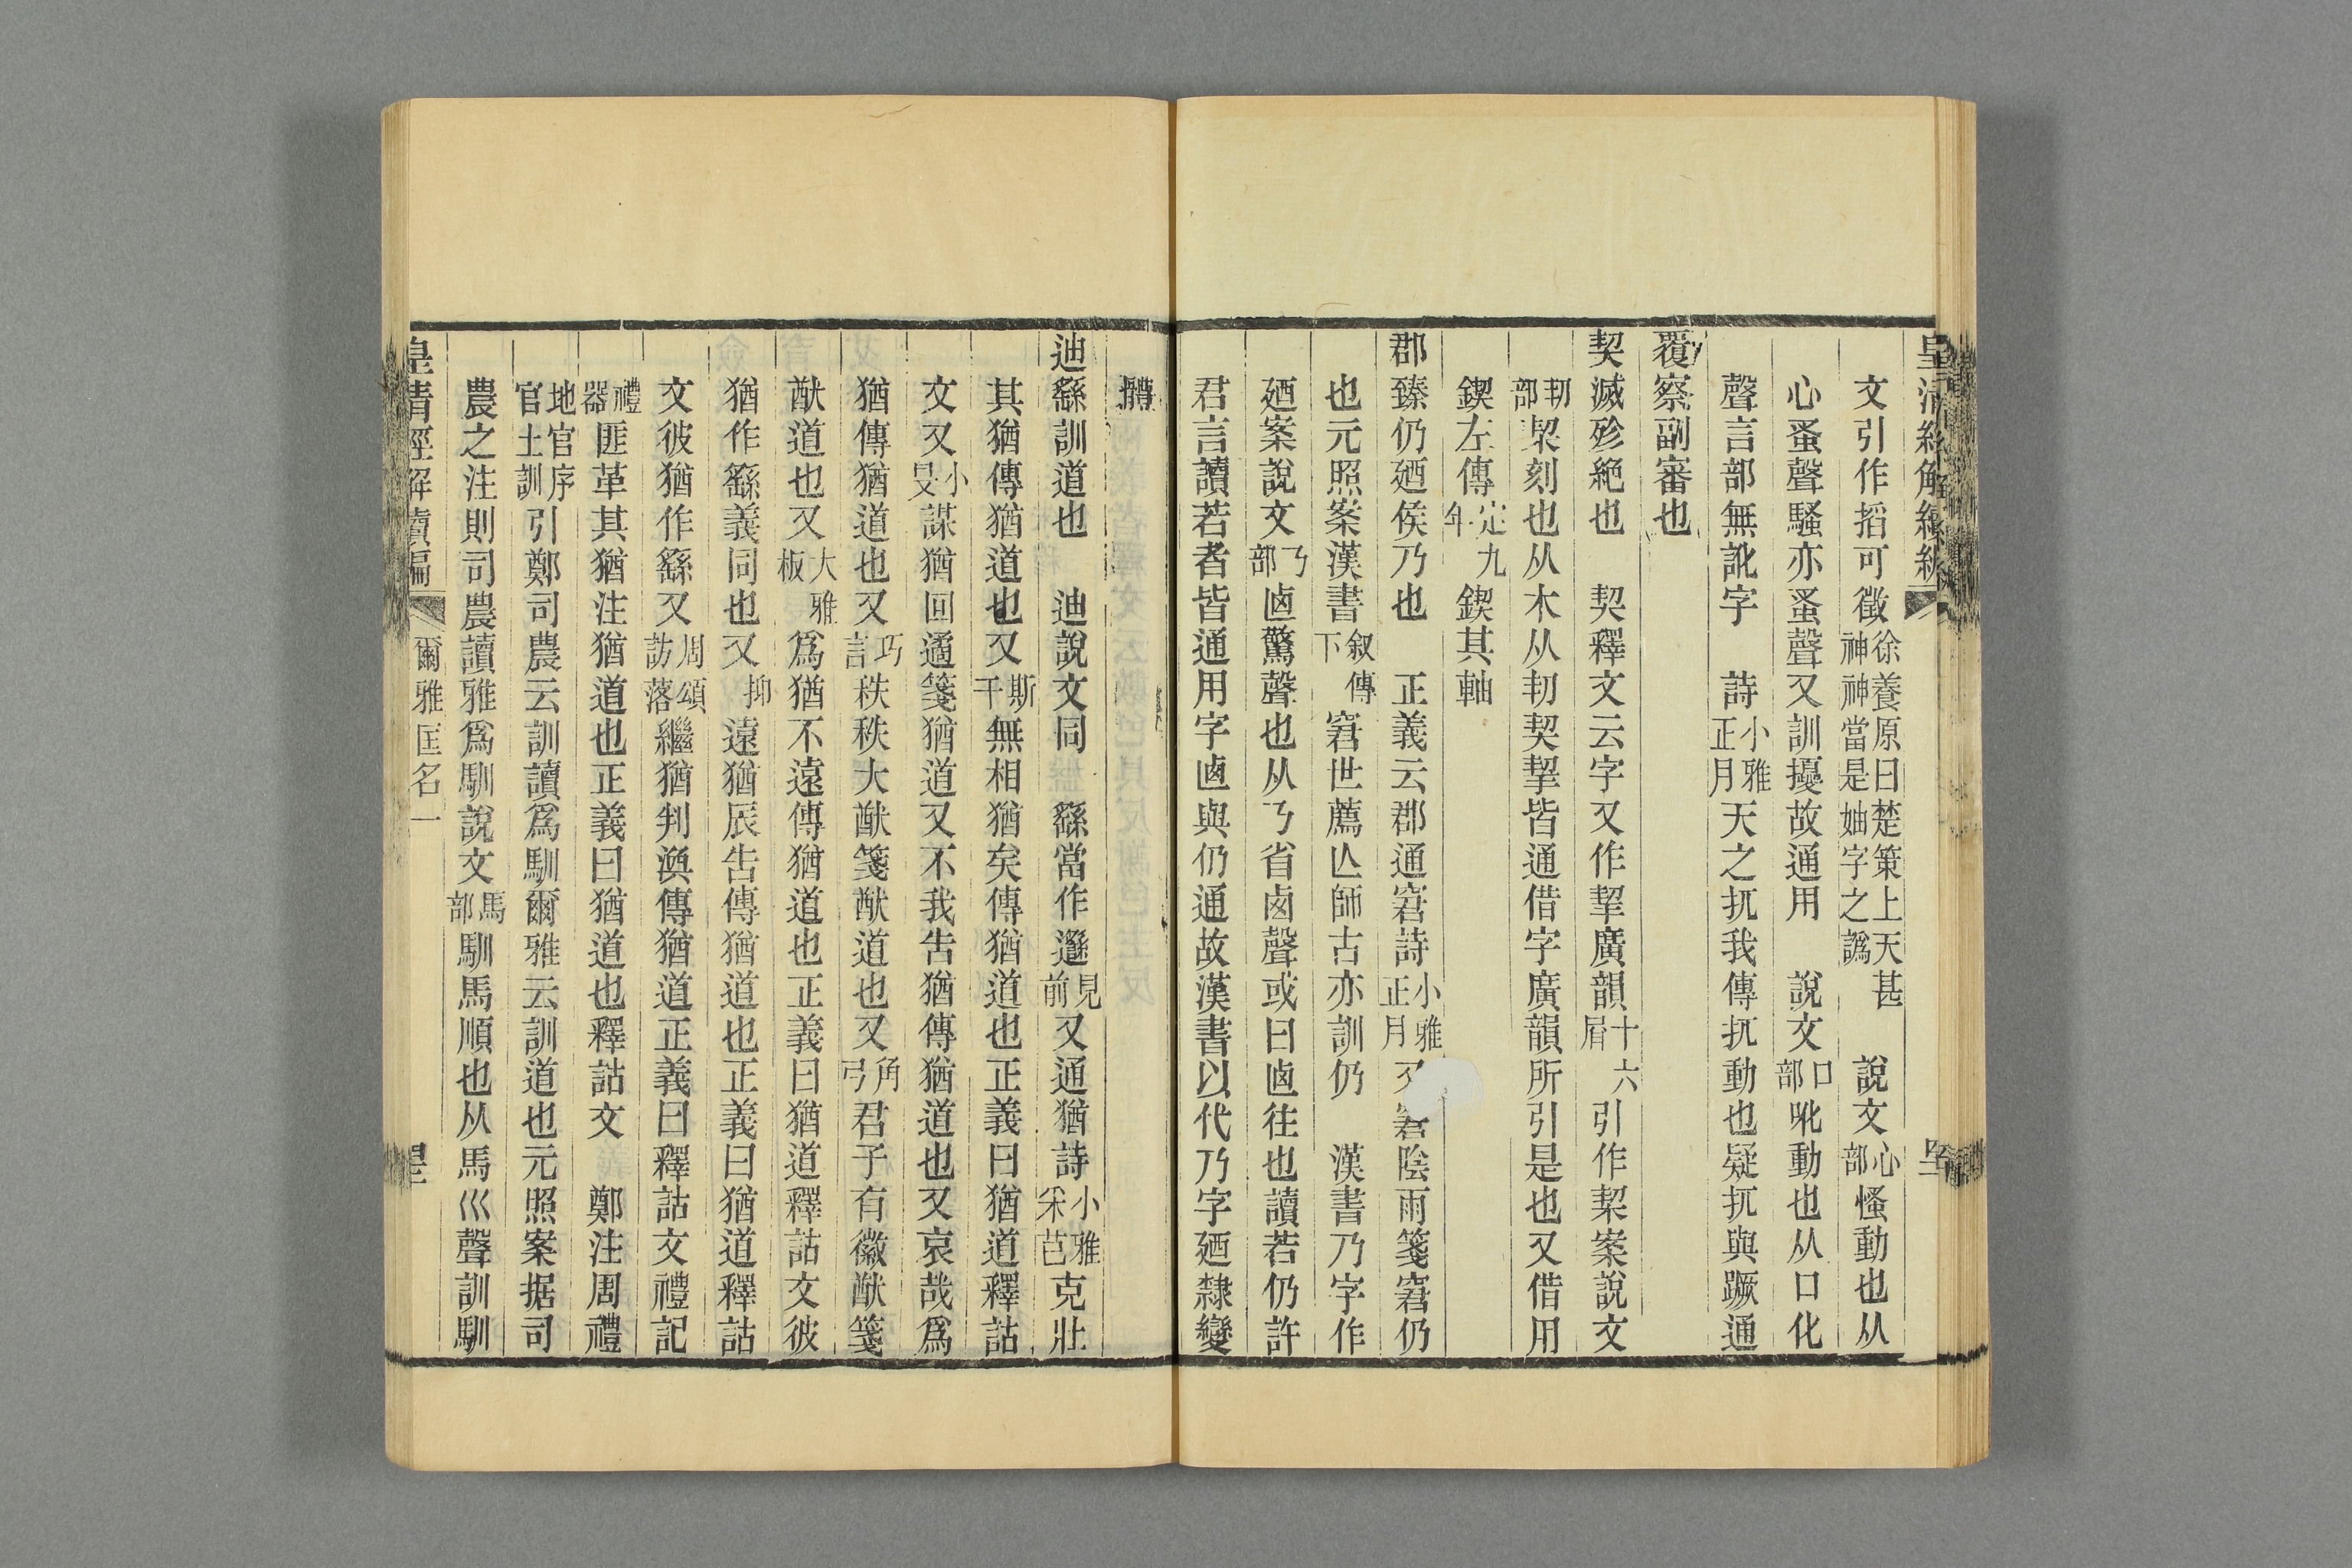 皇清經解續編
文引作搯可徵徐養原曰楚策上天甚神神當是妯字之譌　說文心部慅動也从
心蚤聲騷亦蚤聲又訓擾故通用　說文口部吪動也从口化
聲言部無訛字　詩小雅正月天之扤我傳扤動也疑扤與蹶通
覆察副審也
契滅殄絶也　契釋文云字又作挈廣韻十六屑引作栔案說文
㓞部栔刻也从木从㓞契挈皆通借字廣韻所引是也又借用
鍥左傳定九年鍥其軸
郡臻仍廼侯乃也　正義云郡通窘詩小雅正月又窘陰雨箋窘仍
也元照案漢書叙傳下窘世薦亾師古亦訓仍　漢書乃字作
廼案說文乃部卥驚聲也从乃省卤聲或曰卥往也讀若仍許
君言讀若者皆通用字卥與仍通故漢書以代乃字廼隸變
體
迪繇訓道也　迪說文同　繇當作邎見前又通猶詩小雅采芑克壯
其猶傳猶道也又斯干無相猶矣傳猶道也正義曰猶道釋詁
文又小旻謀猶回遹箋猶道又不我告猶傳猶道也又哀哉爲
猶傳猶道也又巧言秩秩大猷箋猷道也又角弓君子有徽猷箋
猷道也又大雅板爲猶不遠傳猶道也正義曰猶道釋詁文彼
猶作繇義同也又抑遠猶辰告傳猶道也正義曰猶道釋詁
文彼猶作繇又周頌訪落繼猶判渙傳猶道正義曰釋詁文禮記
禮器匪革其猶注猶道也正義曰猶道也釋詁文　鄭注周禮
地官序官土訓引鄭司農云訓讀爲馴爾雅云訓道也元照案据司
農之注則司農讀雅爲馴說文馬部馴馬順也从馬巛聲訓馴
皇清經解續編　爾雅匡名一